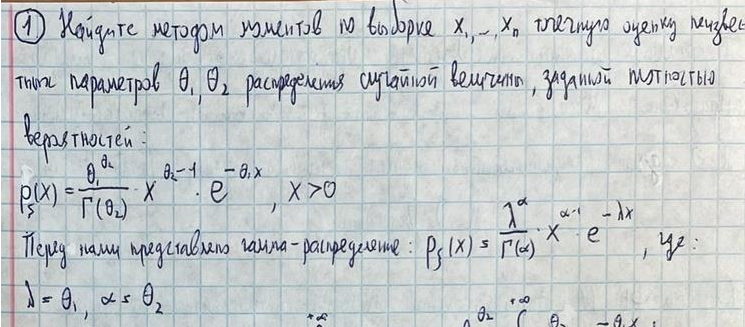 ① Найдите методом моментов по выборке x₁,..,xₙ точечную оценку неизвес
тных параметров θ₁, θ₂ распределения случайной величины, заданной плотностью
вероятностей:
p_ξ(x) = θ₁^θ₂ / Γ(θ₂) · x^(θ₂-1) · e^(-θ₁x), x>0
Перед нами представлено гамма-распределение: p_ξ(x) = λ^α / Γ(α) · x^(α-1) · e^(-λx), где:
λ = θ₁, α = θ₂